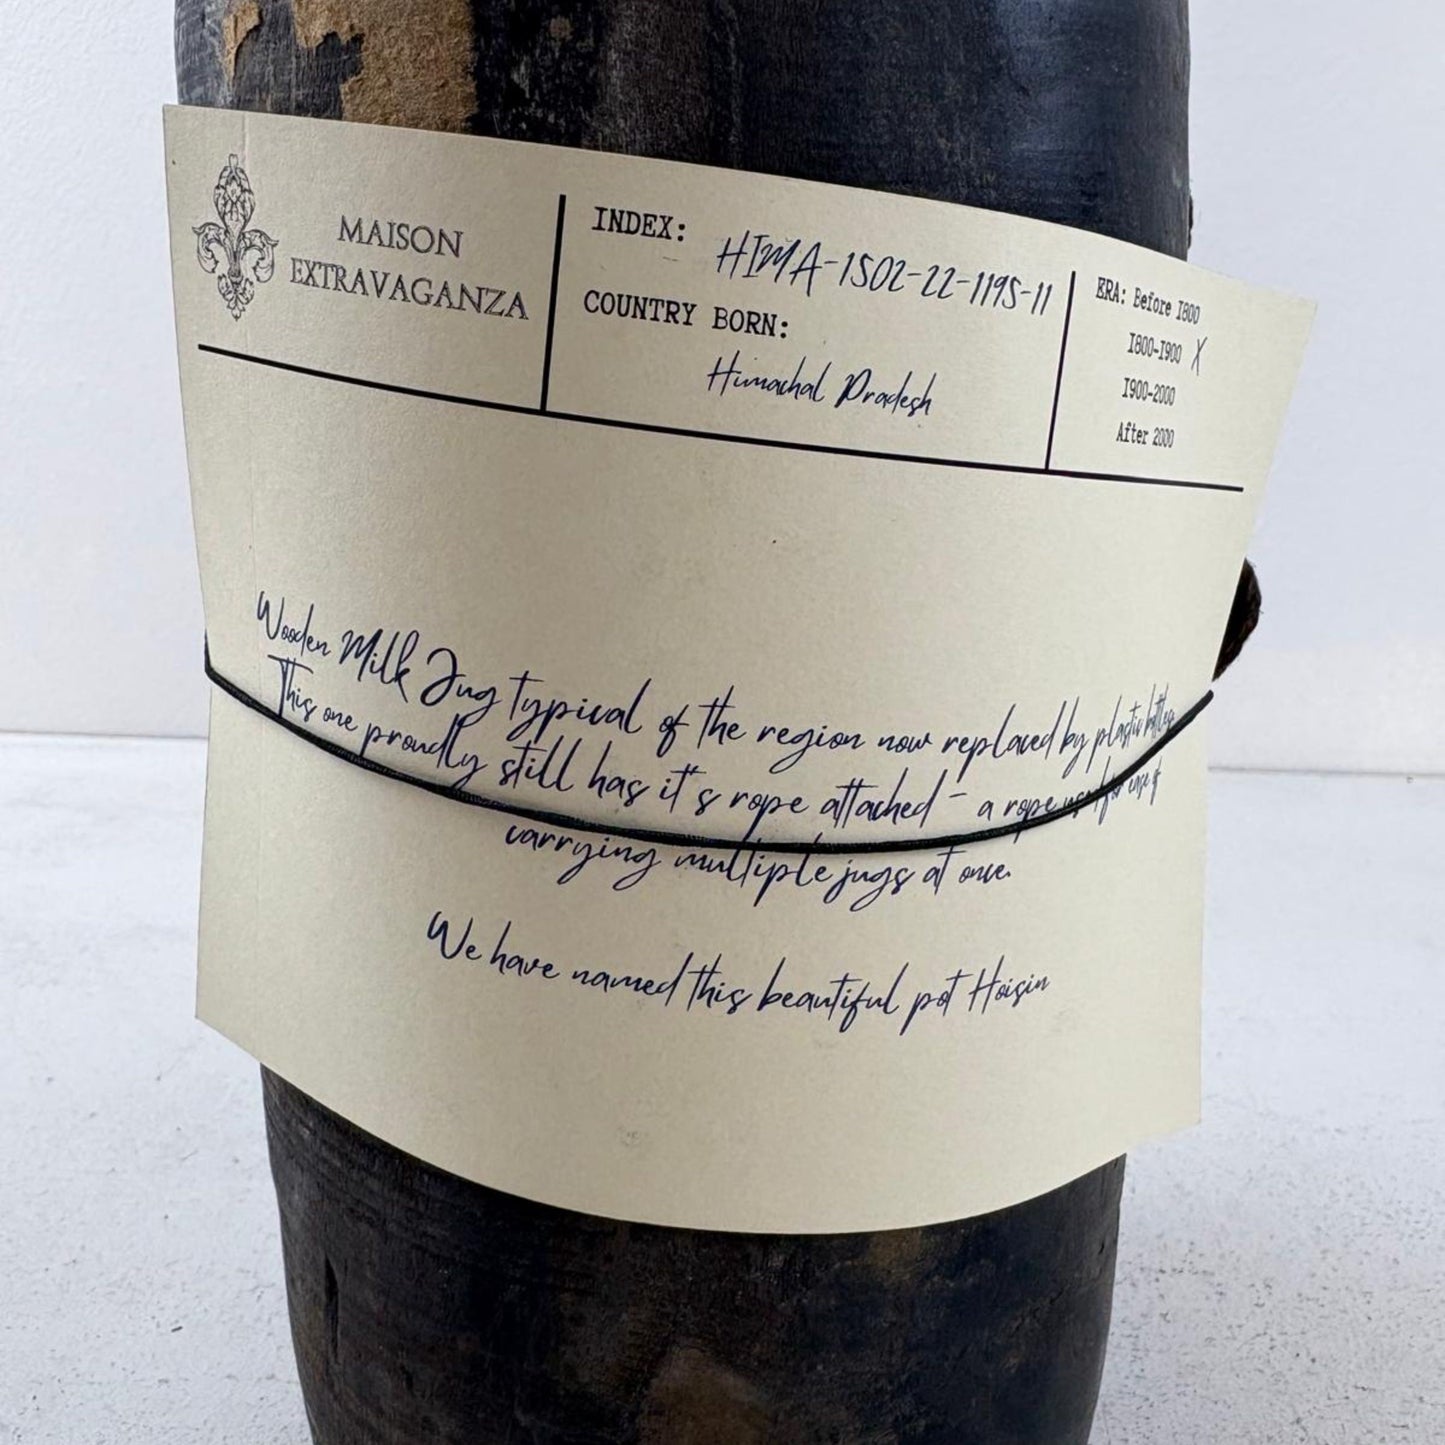 MAISON
EXTRAVAGANZA
INDEX: HIMA-1502-22-1195-11
COUNTRY BORN:
Himachal Pradesh
ERA: Before 1800
1800-1900 X
1900-2000
After 2000
Wooden Milk Jug typical of the region now replaced by plastic bottles.
This one proudly still has it's rope attached - a rope used for ease of
carrying multiple jugs at once.
We have named this beautiful pot Hoisin